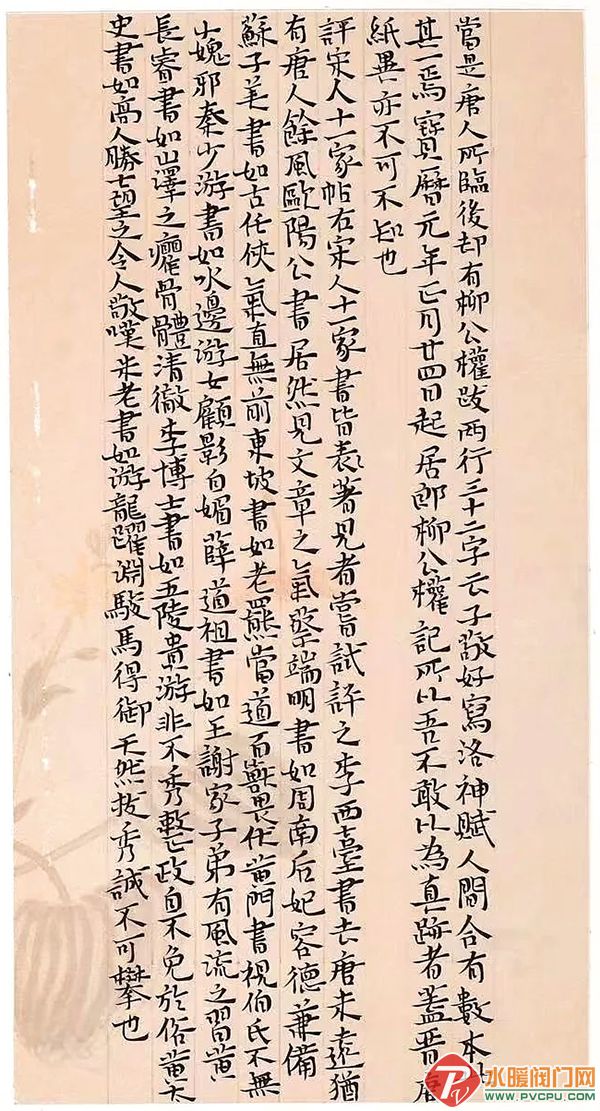 當是唐人所臨後却有柳公權跋兩行三十二字云子敬好寫洛神賦人間合有數本此
其一焉寶曆元年正月廿四日起居郎柳公權記所以吾不敢以為真跡者蓋晉唐
紙異亦不可不知也
評宋人十一家帖右宋人十一家書皆表著見者嘗試評之李西臺書去唐未遠猶
有唐人餘風歐陽公書居然見文章之氣蔡端明書如周南后妃容德兼備
蘇子美書如古任俠氣直無前東坡書如老羆當道百獸畏伏黃門書視伯氏不無
小媿邪秦少游書如水邊游女顧影自媚薛道祖書如王謝家子弟有風流之習黃
長睿書如山澤之癯骨體清徹李博士書如五陵貴游非不秀整政自不免於俗黃太
史書如高人勝士望之令人敬嘆米老書如游龍躍淵駿馬得御天然拔秀誠不可攀也
水暖阀门网
WWW.PVCPU.COM